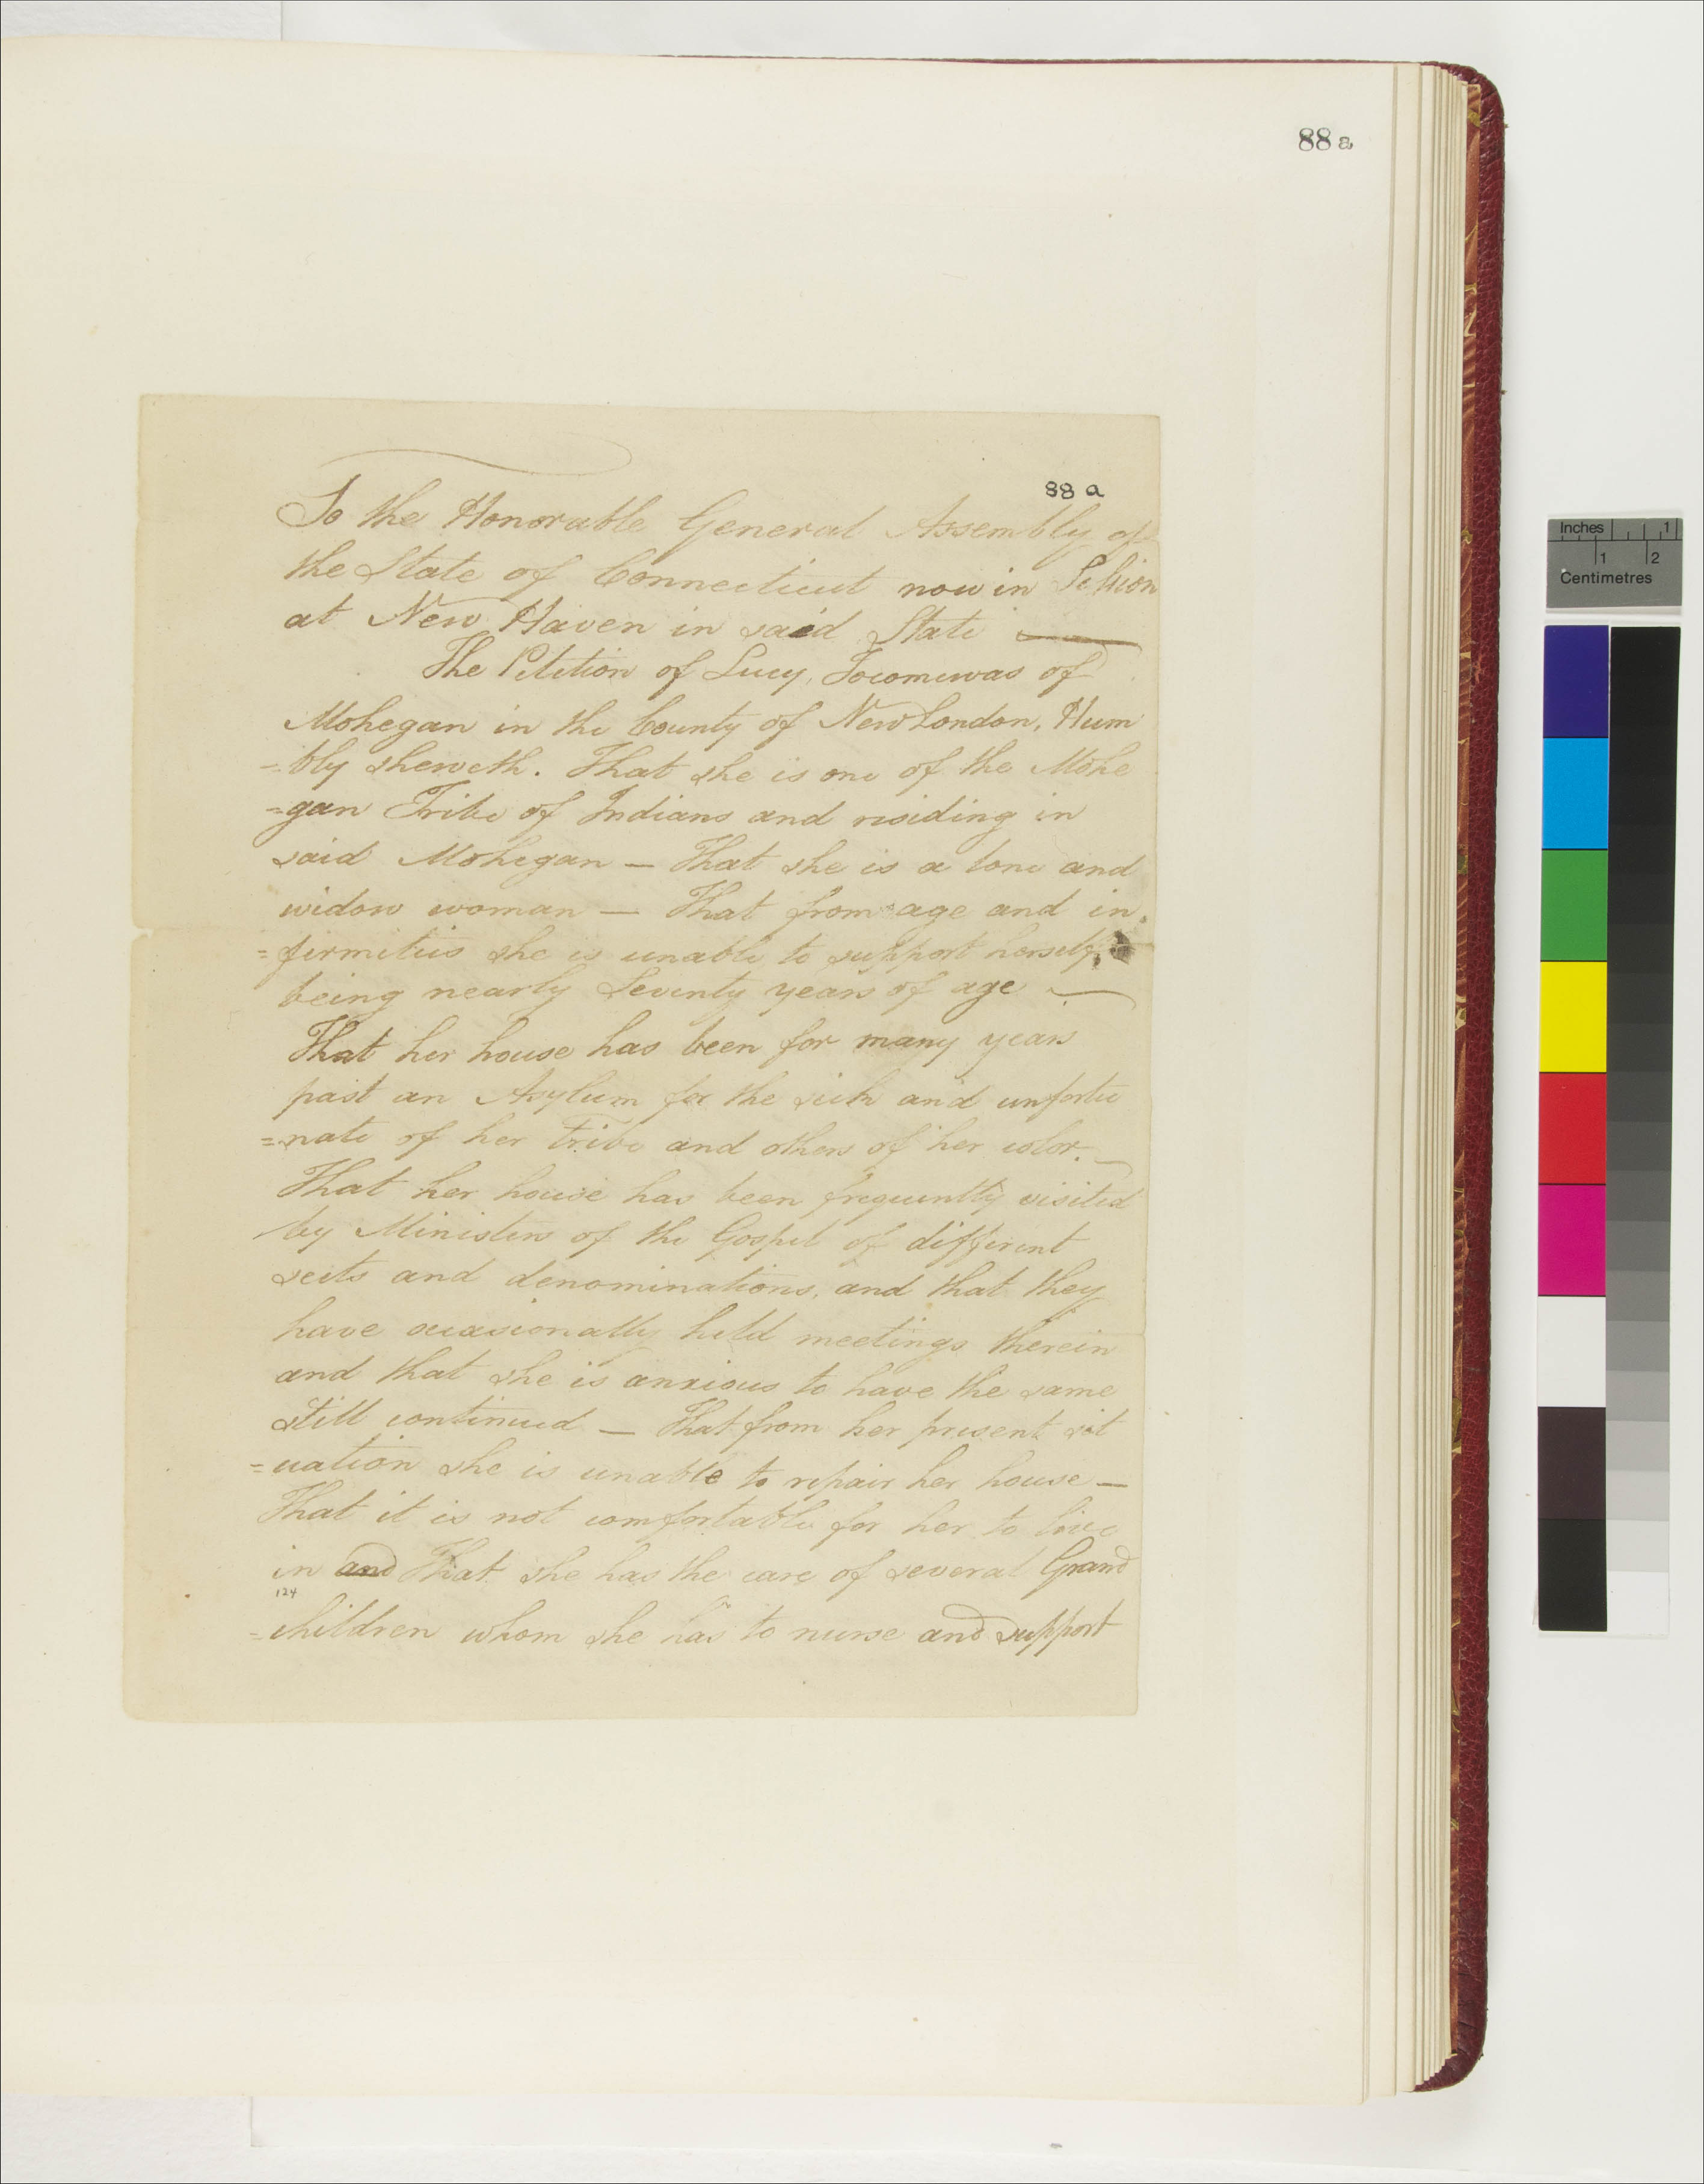 88 a
88 a
To the Honorable General Assembly of
the State of Connecticut now in Session
at New Haven in said State —
The Petition of Lucy, Tocomwas of
Mohegan in the County of New London, Hum
=bly sheweth. That she is one of the Mohe
=gan Tribe of Indians and residing in
said Mohegan — That she is a lone and
widow woman — That from age and in
=firmities she is unable to support herself,
being nearly Seventy years of age —
That her house has been for many years
past an Asylum for the sick and unfortu
=nate of her Tribe and others of her color. —
That her house has been frequently visited
by Ministers of the Gospel of different
sects and denominations, and that they
have occasionally held meetings therein
and that she is anxious to have the same
still continued — That from her present sit
=uation she is unable to repair her house —
That it is not comfortable for her to live
in and That she has the care of several Grand
124
=children whom she has to nurse and support
Inches 1
1 2
Centimetres